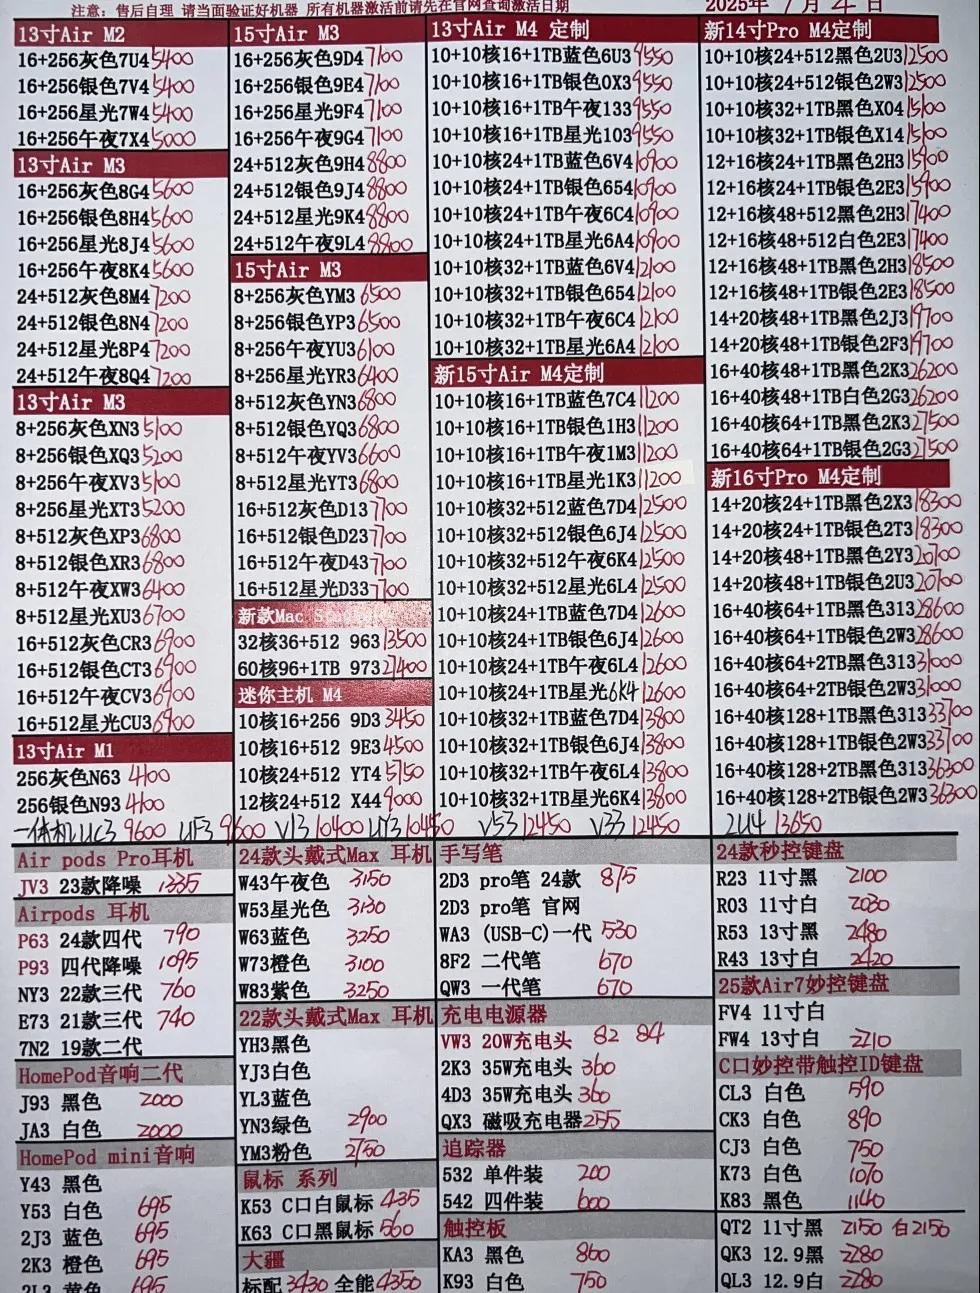 注意: 售后自理 请当面验证好机器 所有机器激活前请先在官网查询激活日期
2025年 7月 4日
13寸Air M2
16+256灰色7U4 5400
16+256银色7V4 5400
16+256星光7W4 5400
16+256午夜7X4 5000
13寸Air M3
16+256灰色8G4 5600
16+256银色8H4 5600
16+256星光8J4 5600
16+256午夜8K4 5600
24+512灰色8M4 7200
24+512银色8N4 7200
24+512星光8P4 7200
24+512午夜8Q4 7200
13寸Air M3
8+256灰色XN3 5100
8+256银色XQ3 5200
8+256午夜XV3 5100
8+256星光XT3 5200
8+512灰色XP3 6800
8+512银色XR3 6800
8+512午夜XW3 6400
8+512星光XU3 6700
16+512灰色CR3 6900
16+512银色CT3 6900
16+512午夜CV3 6900
16+512星光CU3 6900
13寸Air M1
256灰色N63 4100
256银色N93 4100
15寸Air M3
16+256灰色9D4 7100
16+256银色9E4 7100
16+256星光9F4 7100
16+256午夜9G4 7100
24+512灰色9H4 8800
24+512银色9J4 8800
24+512星光9K4 8800
24+512午夜9L4 8800
15寸Air M3
8+256灰色YM3 6500
8+256银色YP3 6500
8+256午夜YU3 6100
8+256星光YR3 6400
8+512灰色YN3 6800
8+512银色YQ3 6800
8+512午夜YV3 6600
8+512星光YT3 6800
16+512灰色D13 7700
16+512银色D23 7700
16+512午夜D43 7700
16+512星光D33 7700
新款Mac
32核36+512 963 13500
60核96+1TB 973 27400
迷你主机 M4
10核16+256 9D3 3450
10核16+512 9E3 4500
10核24+512 YT4 5750
12核24+512 X44 9000
13寸Air M4 定制
10+10核16+1TB蓝色6U3 9550
10+10核16+1TB银色0X3 9550
10+10核16+1TB午夜133 9550
10+10核16+1TB星光103 9550
10+10核24+1TB蓝色6V4 10900
10+10核24+1TB银色654 10900
10+10核24+1TB午夜6C4 10900
10+10核24+1TB星光6A4 10900
10+10核32+1TB蓝色6V4 12100
10+10核32+1TB银色654 12100
10+10核32+1TB午夜6C4 12100
10+10核32+1TB星光6A4 12100
新15寸Air M4定制
10+10核16+1TB蓝色7C4 11200
10+10核16+1TB银色1H3 11200
10+10核16+1TB午夜1M3 11200
10+10核16+1TB星光1K3 11200
10+10核32+512蓝色7D4 12500
10+10核32+512银色6J4 12500
10+10核32+512午夜6K4 12500
10+10核32+512星光6L4 12500
10+10核24+1TB蓝色7D4 12600
10+10核24+1TB银色6J4 12600
10+10核24+1TB午夜6L4 12600
10+10核24+1TB星光6K4 12600
10+10核32+1TB蓝色7D4 13800
10+10核32+1TB银色6J4 13800
10+10核32+1TB午夜6L4 13800
10+10核32+1TB星光6K4 13800
新14寸Pro M4定制
10+10核24+512黑色2U3 12500
10+10核24+512银色2W3 12500
10+10核32+1TB黑色X04 15100
10+10核32+1TB银色X14 15100
12+16核24+1TB黑色2H3 15900
12+16核24+1TB银色2E3 15900
12+16核48+512黑色2H3 17400
12+16核48+512白色2E3 17400
12+16核48+1TB黑色2H3 18500
12+16核48+1TB银色2E3 18500
14+20核48+1TB黑色2J3 19700
14+20核48+1TB银色2F3 19700
16+40核48+1TB黑色2K3 26200
16+40核48+1TB白色2G3 26200
16+40核64+1TB黑色2K3 27500
16+40核64+1TB银色2G3 27500
新16寸Pro M4定制
14+20核24+1TB黑色2X3 18300
14+20核24+1TB银色2T3 18300
14+20核48+1TB黑色2Y3 20700
14+20核48+1TB银色2U3 20700
16+40核64+1TB黑色313 28600
16+40核64+1TB银色2W3 28600
16+40核64+2TB黑色313 31000
16+40核64+2TB银色2W3 31000
16+40核128+1TB黑色313 33700
16+40核128+1TB银色2W3 33700
16+40核128+2TB黑色313 36300
16+40核128+2TB银色2W3 36300
一体机UC3 9600 UF3 9600 V13 10400 UY3 10450 V53 12450 V33 12450 2U4 13650
Air pods Pro耳机
JV3 23款降噪 1335
Airpods 耳机
P63 24款四代 790
P93 四代降噪 1095
NY3 22款三代 760
E73 21款三代 740
7N2 19款二代
HomePod音响二代
J93 黑色 2000
JA3 白色 2000
HomePod mini音响
Y43 黑色
Y53 白色 695
2J3 蓝色 695
2K3 橙色 695
2L3 黄色 695
24款头戴式Max 耳机
W43午夜色 3150
W53星光色 3130
W63蓝色 3250
W73橙色 3100
W83紫色 3250
22款头戴式Max 耳机
YH3黑色
YJ3白色
YL3蓝色
YN3绿色 2900
YM3粉色 2750
鼠标 系列
K53 C口白鼠标 435
K63 C口黑鼠标 560
大疆
标配 3430 全能 4350
手写笔
2D3 pro笔 24款 875
2D3 pro笔 官网
WA3 (USB-C)一代 530
8F2 二代笔 670
QW3 一代笔 670
充电电源器
VW3 20W充电头 82 84
2K3 35W充电头 360
4D3 35W充电头 360
QX3 磁吸充电器 255
追踪器
532 单件装 200
542 四件装 600
触控板
KA3 黑色 860
K93 白色 750
24款秒控键盘
R23 11寸黑 2100
R03 11寸白 2030
R53 13寸黑 2480
R43 13寸白 2420
25款Air7妙控键盘
FV4 11寸白
FW4 13寸白 2210
C口妙控带触控ID键盘
CL3 白色 590
CK3 白色 890
CJ3 白色 750
K73 白色 1070
K83 黑色 1140
QT2 11寸黑 2150 白2150
QK3 12.9黑 2280
QL3 12.9白 2280